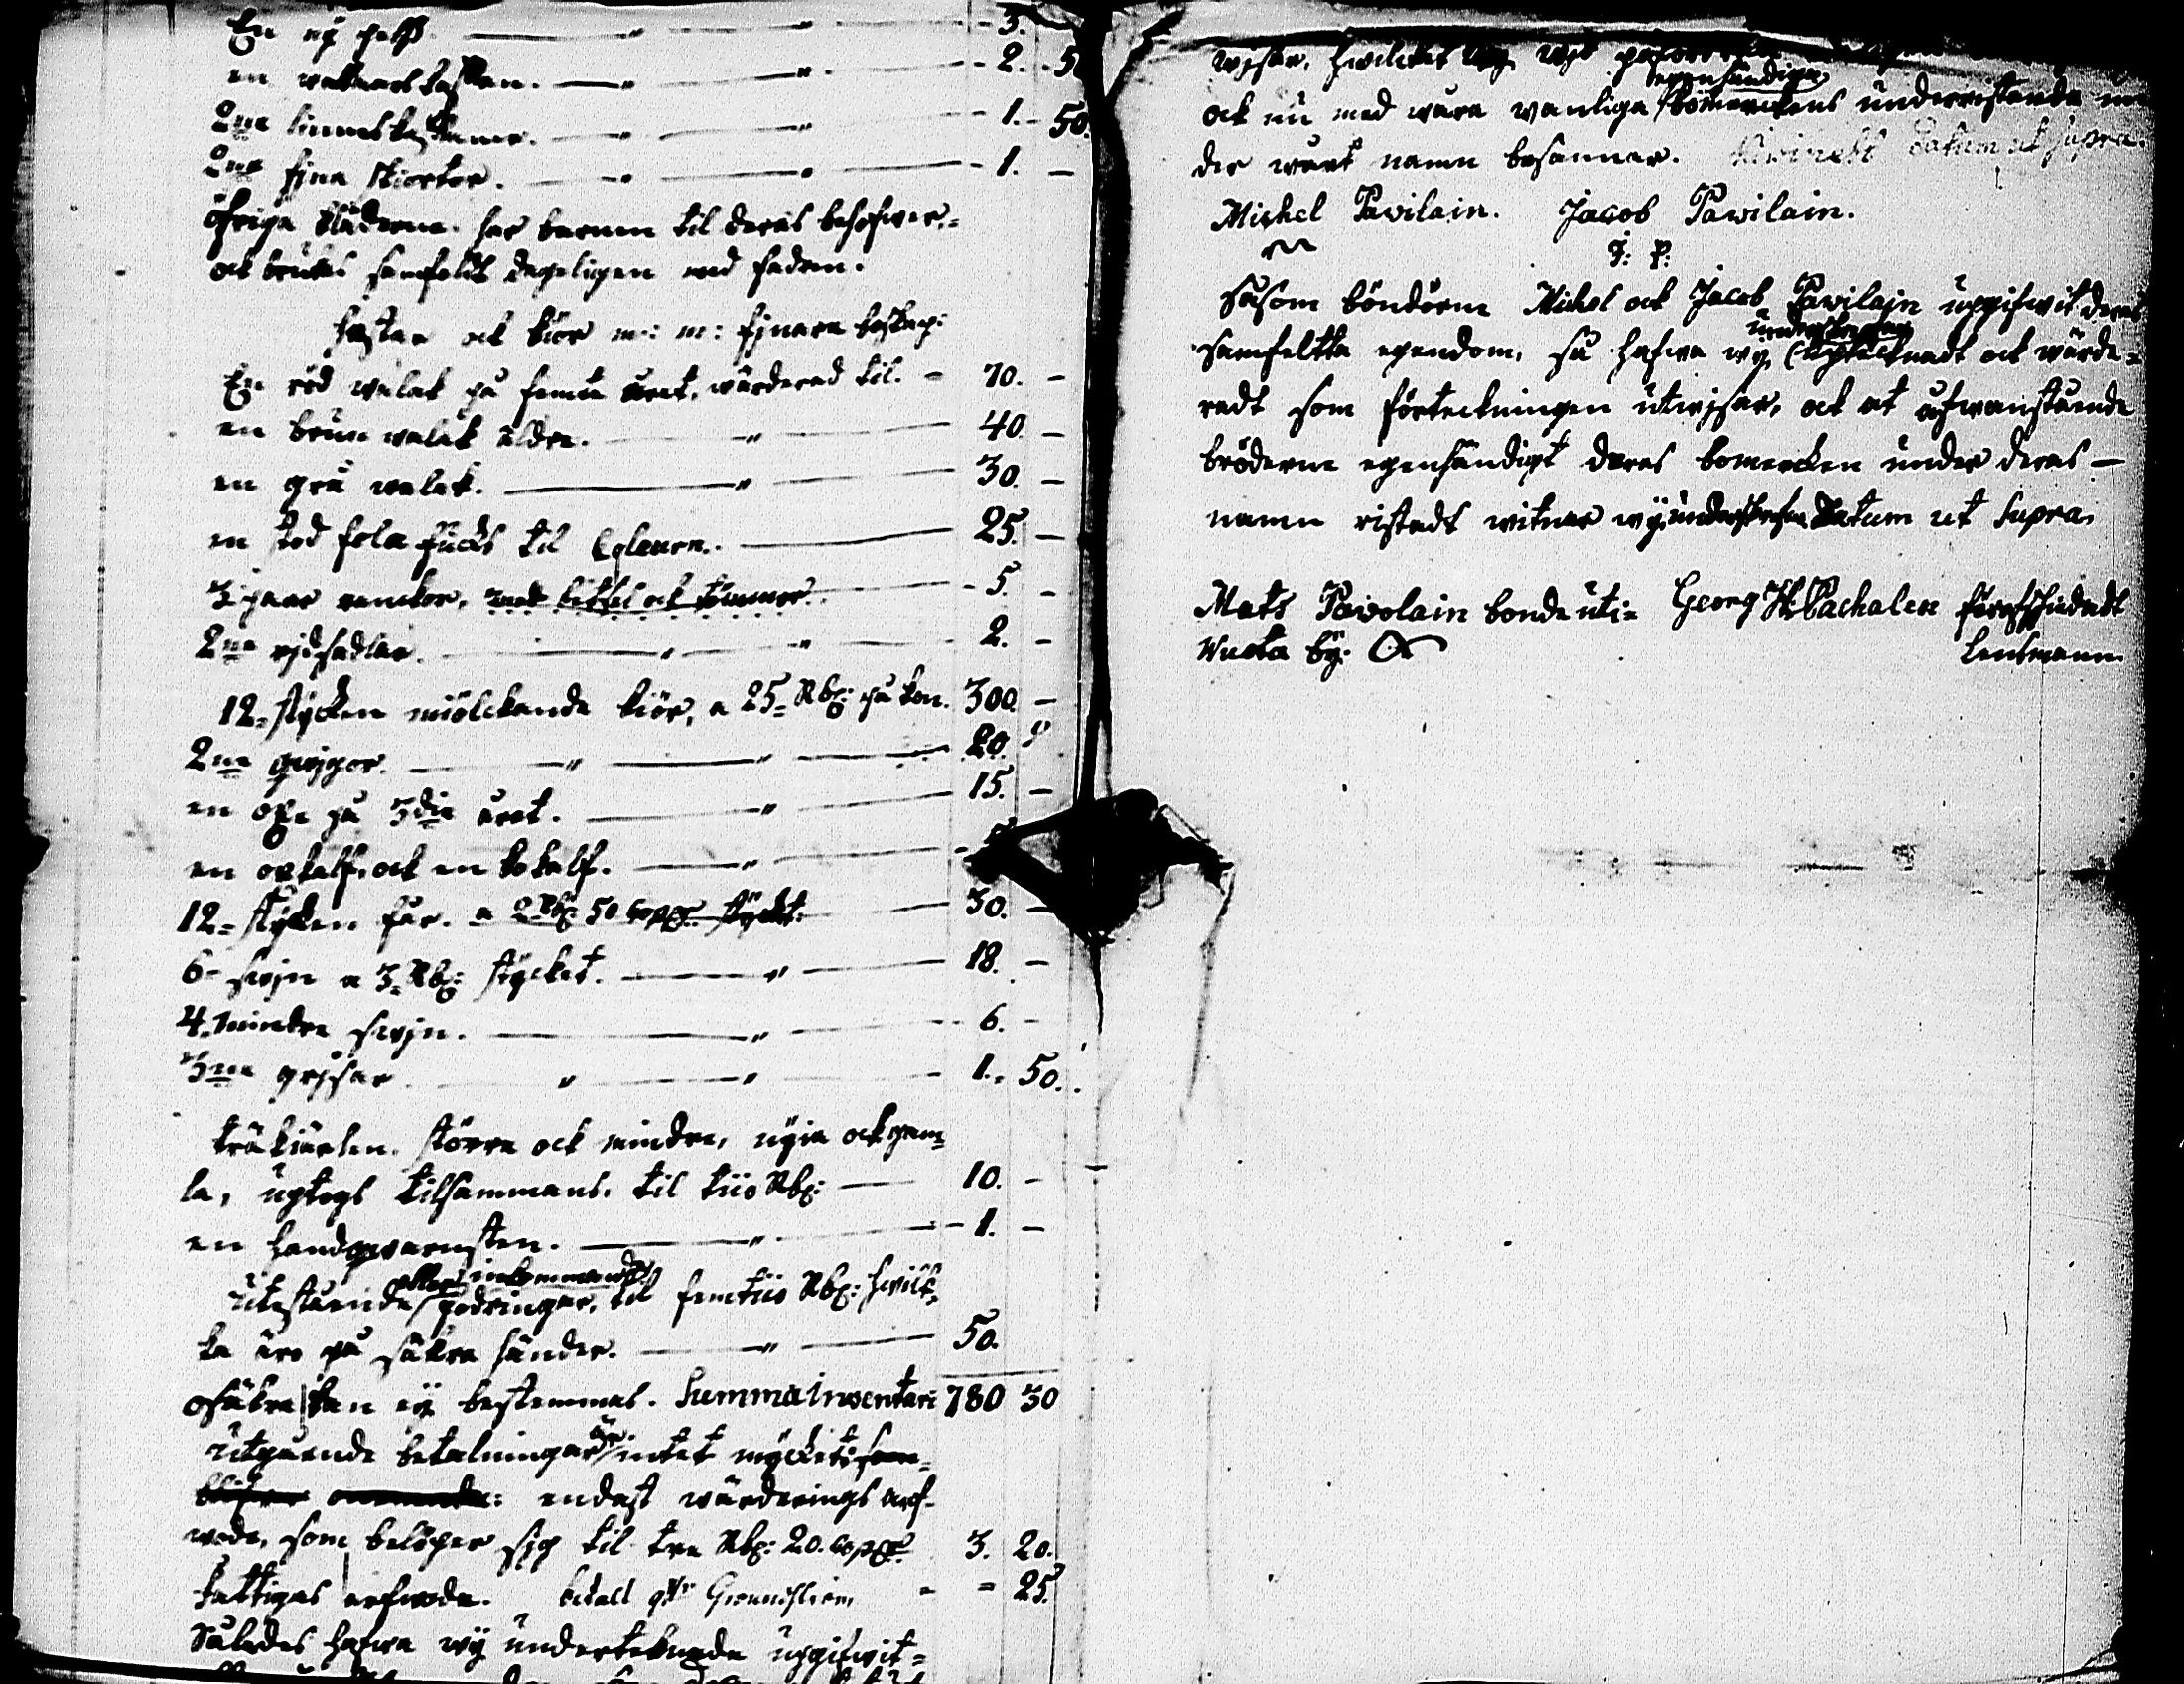 En ny pels. — " — " — 3. —
en walmars kasttan. — " — " — 2. 50
2ne linnes kasttaner. — " — " — 1. 50.
2ne fina skiortor. — " — " — 1. —
öfriga klæderne. har barnen til deras behofwer,=
ock brukas samfält dageligen med fadren.
Hæstar ock kiör m: m: fjnare boskap:
En röd walak på femte året, wärderad til. — 70. —
en brun walak äldre. — " — 40. —
en grå walak. — " — 30. —
en stod fola fucks til — 25. —
3 paar ranckor, med betsel ock tömmar. — 5. —
2ne rjdsadlar. — " — " — 2. —
12= stycken miölckande kiör, a 25= Rbl: på kon. 300. —
2ne qwjgor. — " — " — 20.
en oxe på 3die året. — " — 15. —
en oxkalf, ock en kokalf. — " —
12= stycken får. a 2 Rbl: 50 Copp: stycket. — 30. —
6= swjn a 3= Rbl: stycket. — " — 18. —
4. mindre swjn. — " — 6. —
3ne grjsar. " — " — 1. 50.
träkiärlen. större ock mindre, nyia ock gam=
la, uptogs tilsammans. til tiio Rbl: — 10. —
en handqwarnsten. — " — 1. —
eller inkommande
utestaende fodringar, til femtiio Rbl: hwilc=
ka äro på säkra händer. — " — 50.
osäkra kan ej bestemmas. Summa inwentari 780 30
är
utgaende betalningar intet mycket: som=
endast wärderings arf=
wode, som belöper sjg til tre Rbl: 20. Copp: 3. 20.
fattigas arfwode. betalt " = 25.
Således hafwa wij underteknade uppifwit=
wjsar, hwilcket wij
egenhändiga
ock nu med wara wanliga bomerckens underristande un
der wart namn besannar. Datum ut supra.
Michel Pawilain. Jacob Pawilain.
J: P:
Såsom bönderne Michel ock Jacob Pawilain uppifwit deras
samfeltta egendom, så hafwa wij uptecknadt ock wärde=
radt som förteckningen utwjsar, ock at ofwanstaende
bröderne egenhändigt deras bomercken under deras —
namn ristadt witnar wij underskrefne Datum ut Supra,
Mats Pawolain bonde uti= Georg H. Pachalen förafschiedadt
Wuota by. Lensmann